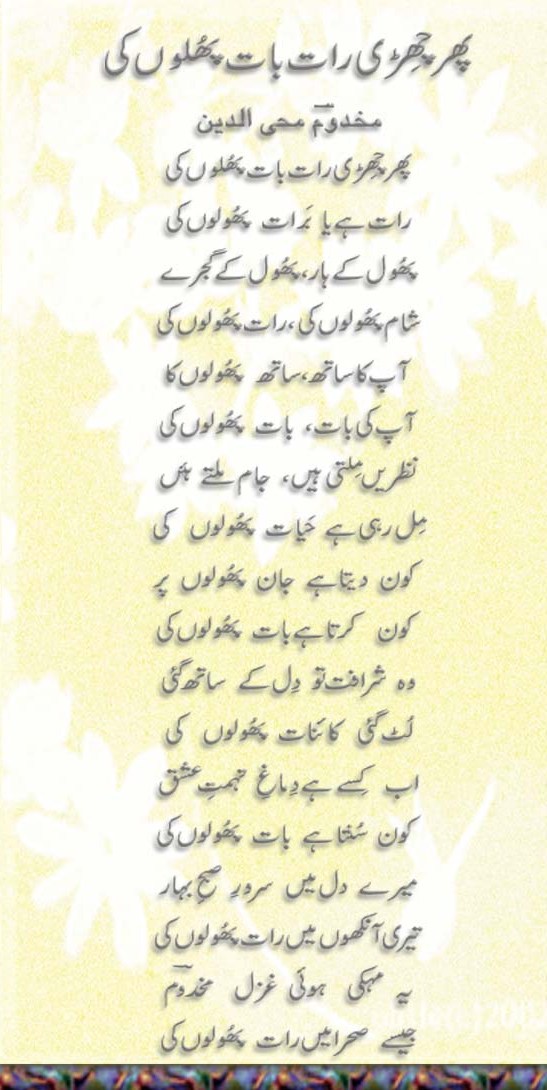 پھر چھِڑی رات بات پھُلوں کی
مخدومؔ محی الدین
پھر چھِڑی رات بات پھُلوں کی
رات ہے یا بَرات پھُولوں کی
پھُول کے ہار، پھُول کے گجرے
شام پھُولوں کی، رات پھُولوں کی
آپ کا ساتھ، ساتھ پھُولوں کا
آپ کی بات، بات پھُولوں کی
نظریں مِلتی ہیں، جام ملتے ہیں
مِل رہی ہے حَیات پھُولوں کی
کون دیتا ہے جان پھُولوں پر
کون کرتا ہے بات پھُولوں کی
وہ شرافت تو دِل کے ساتھ گئی
لُٹ گئی کائنات پھُولوں کی
اب کِسے ہے دِماغِ تہمتِ عشق
کون سُنتا ہے بات پھُولوں کی
میرے دل میں سرورِ صبحِ بہار
تیری آنکھوں میں رات پھُولوں کی
یہ مہکی ہوئی غزل مخدومؔ
جیسے صحرا میں رات پھُولوں کی